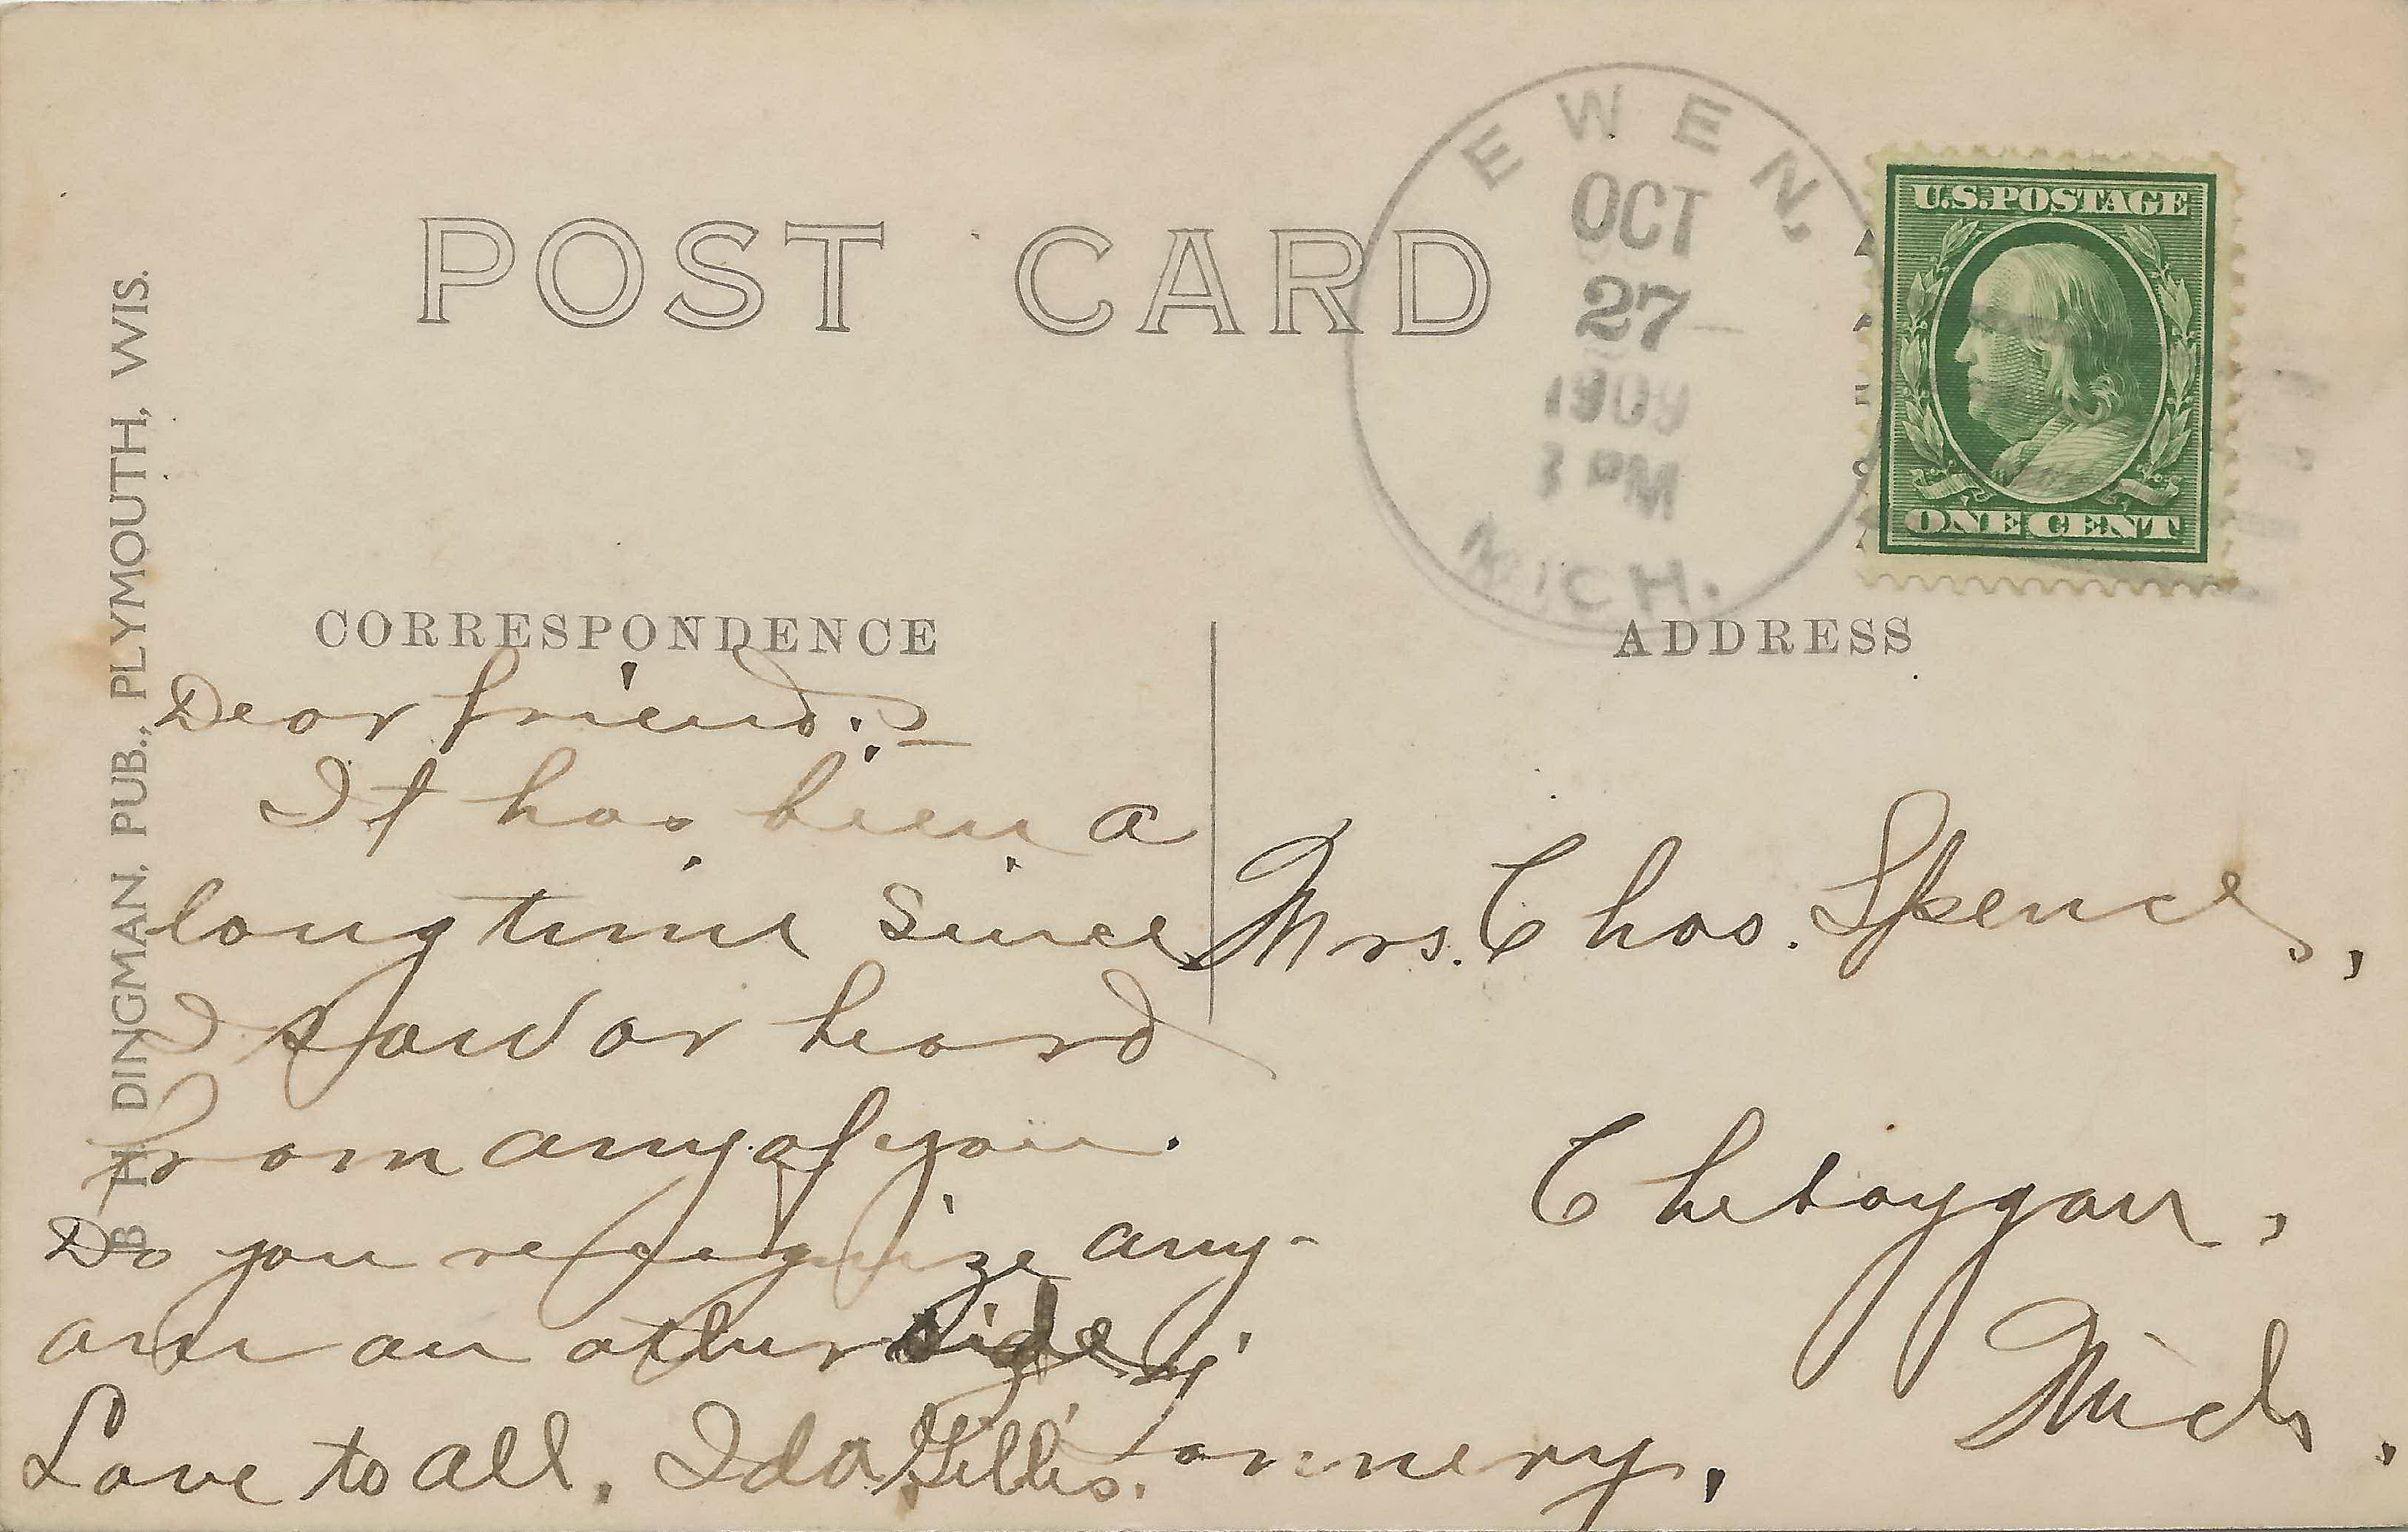 POST CARD
EWEN,
OCT
27
1909
PM
MICH.
U.S. POSTAGE
ONE CENT
B. H. DINGMAN, PUB., PLYMOUTH, WIS.
CORRESPONDENCE
Dear friend:—
It has been a
long time since
I saw or heard
from any of you.
Do you recognize any-
one on other side?
Love to all. Ida Gillis.
ADDRESS
Mrs. Chas. Spence,
Cheboygan,
Mich.